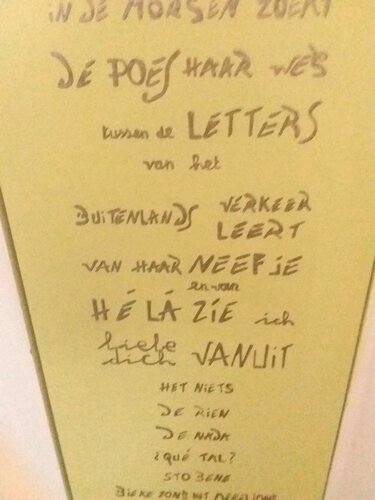 IN DE MORGEN ZOEKT
DE POES HAAR WEG
tussen de LETTERS
van het
BUITENLANDS VERKEER
LEERT
VAN HAAR NEEFJE
en van
HÉ LÁ ZÍE ich
liebe
dich VANUIT
HET NIETS
DE RIEN
DE NADA
¿QUÉ TAL?
STO BENE